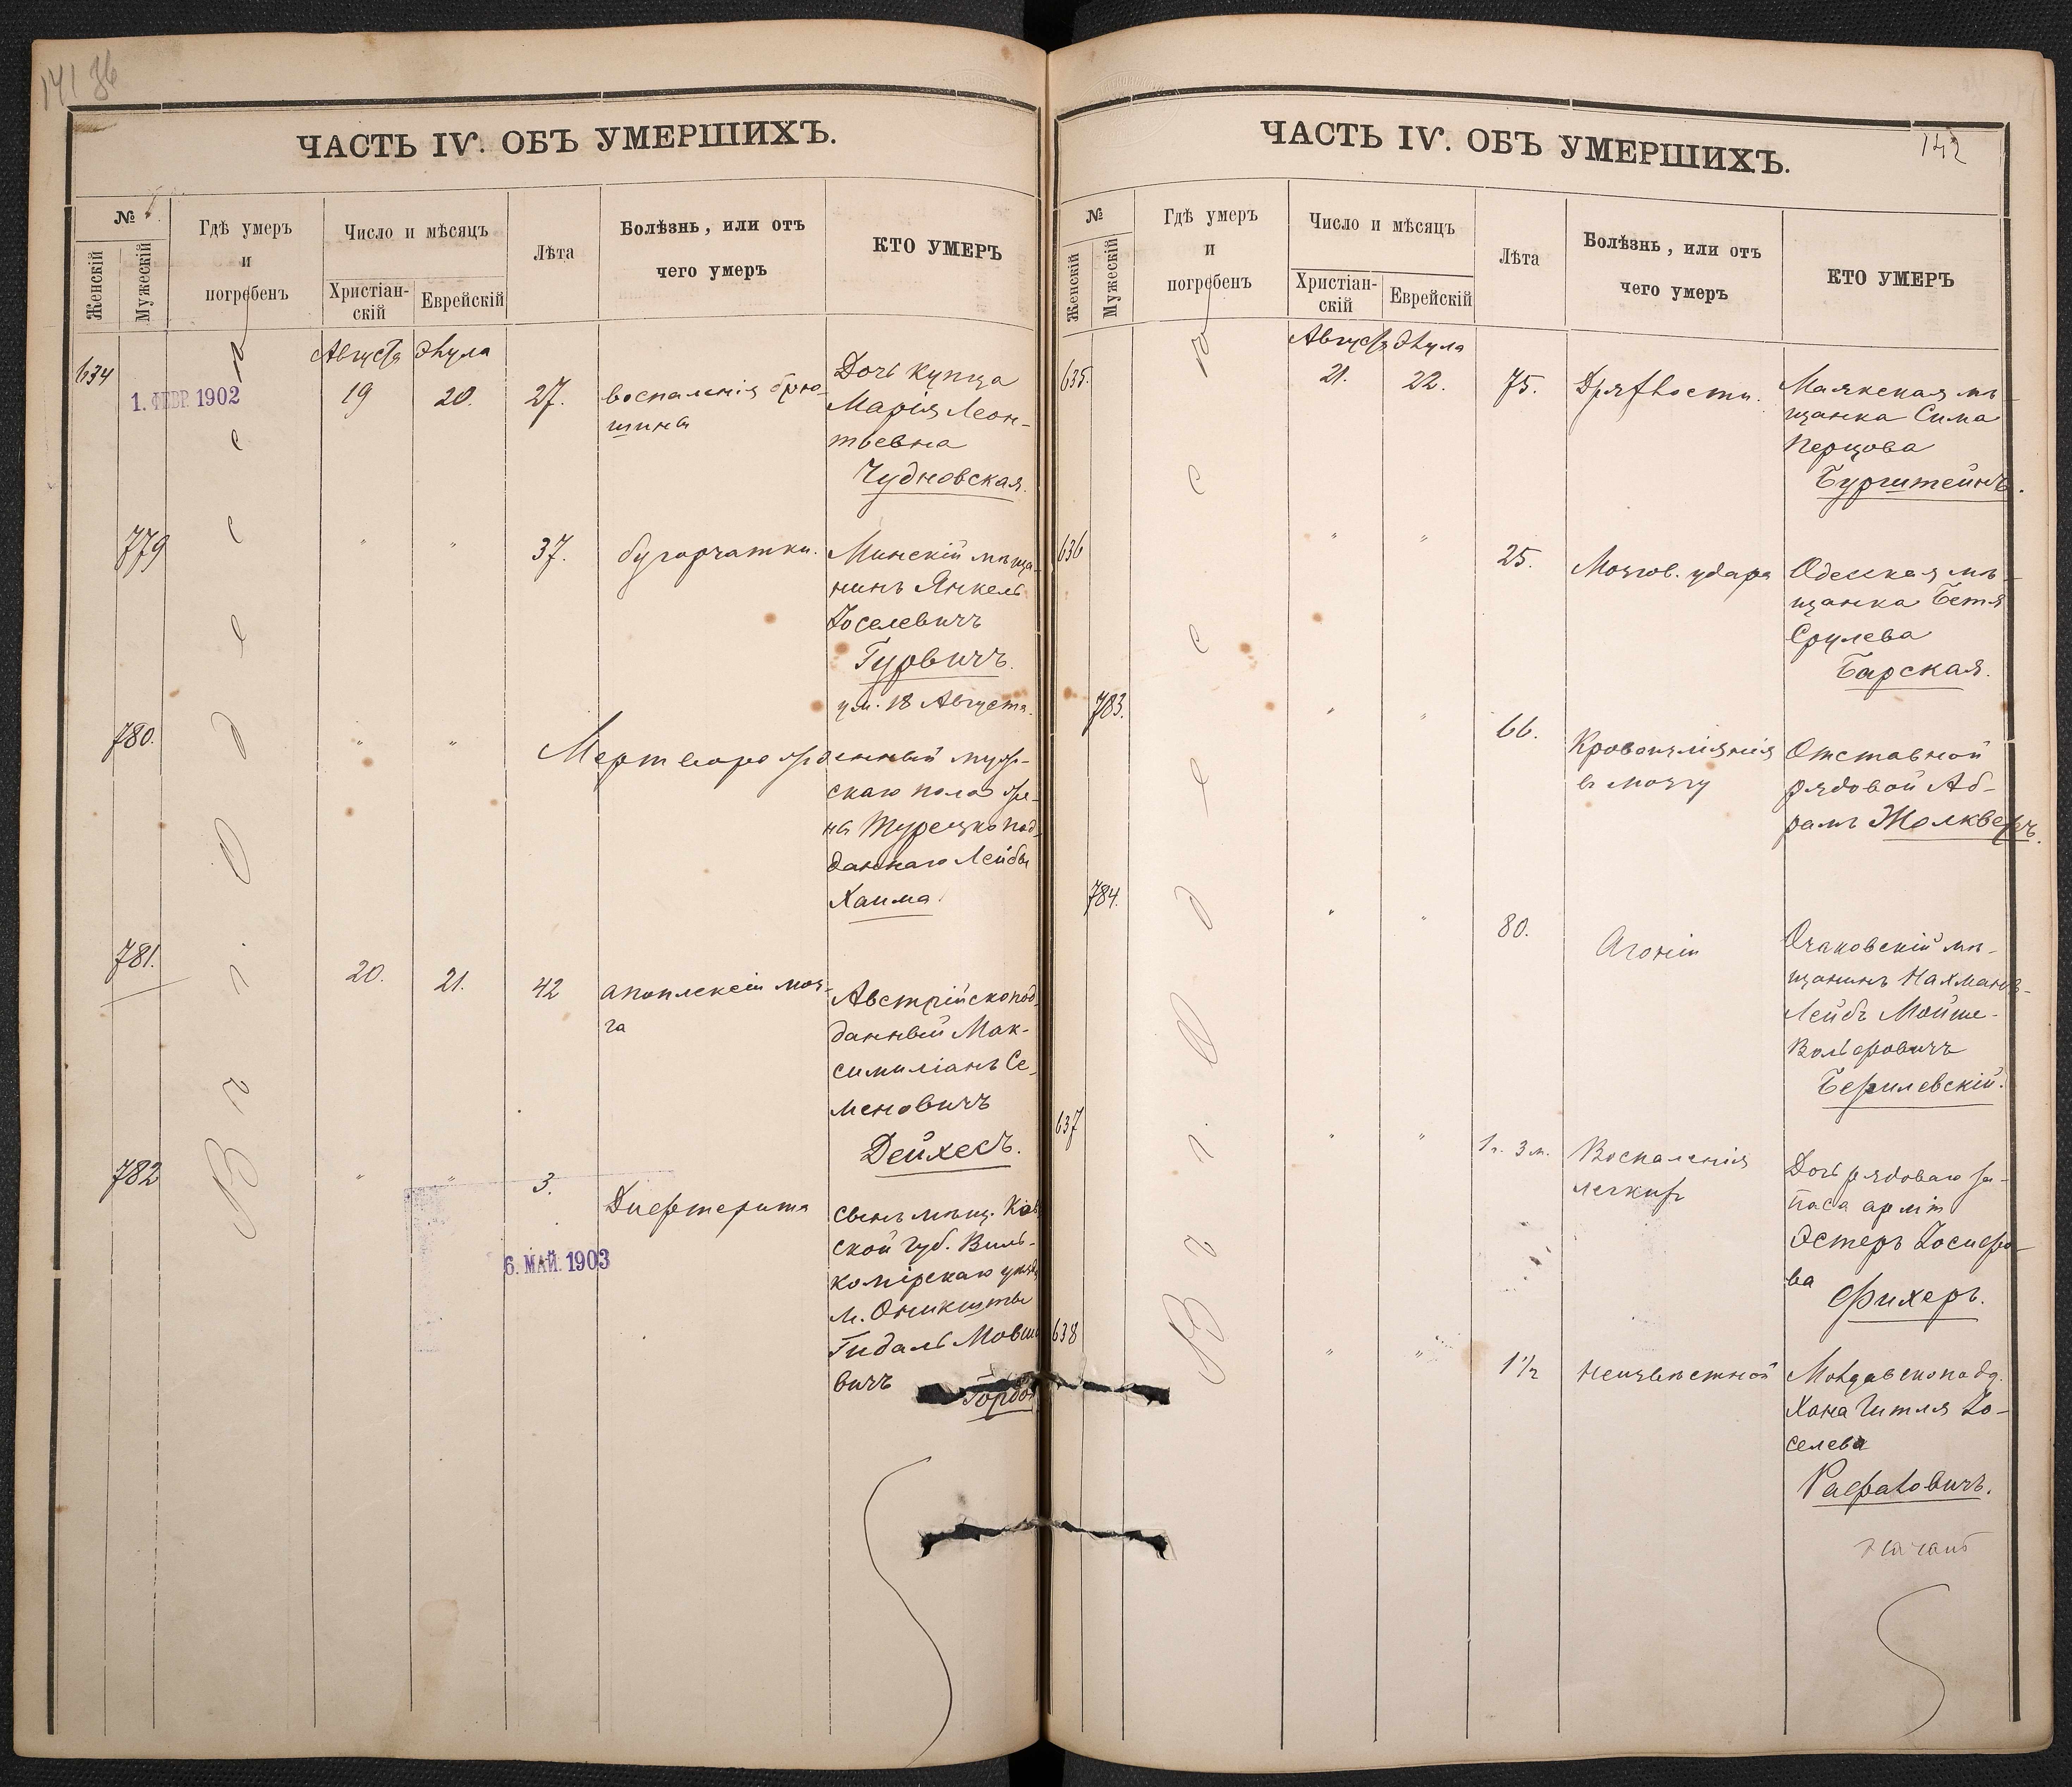 141 36
ЧАСТЬ IV. ОБЪ УМЕРШИХЪ.
№
Женскій
Мужескій
Гдѣ умеръ
и
погребенъ
Число и мѣсяцъ
Христіан-
скій
Еврейскій
Лѣта
Болѣзнь, или отъ
чего умеръ
КТО УМЕРЪ
В г. Одессѣ
Августа Элула
634
1. ФЕВР. 1902
19 20. 27.
воспаленія брю-
шины
Дочь купца
Марія Леон-
тьевна
Чудновская.
779 " " 37. бугорчатки.
Минскій мѣща-
нинъ Янкель
Іоселевичъ
Гурвичъ.
ум. 18 Августа.
780. " "
Мертворожденный муж-
скаго пола же-
ны Турецкопод-
даннаго Лейбы
Хаима.
781. 20. 21. 42
апоплексіи моз-
га
Австрійскопод-
данный Мак-
симиліанъ Се-
меновичъ
Дейхесъ.
782 " " 3. Дифтерита
6. МАЙ. 1903
сынъ мѣщ. Ков
ской губ. Виль-
комірскаго уѣзда
м. Оникшты
Гидаль Мовшо
вичъ
Гордон
142
ЧАСТЬ IV. ОБЪ УМЕРШИХЪ.
№
Женскій
Мужескій
Гдѣ умеръ
и
погребенъ
Число и мѣсяцъ
Христіан-
скій
Еврейскій
Лѣта
Болѣзнь, или отъ
чего умеръ
КТО УМЕРЪ
В г. Одессѣ
Августа Элула
635. 21. 22. 75. Дряхлости.
Маякская мѣ-
щанка Сима
Перцова
Бурштейнъ.
636 " " 25. Мозгов. удара
Одесская мѣ-
щанка Бетя
Срулева
Барская.
783. " " 66.
Кровоизліянія
въ мозгу
Отставной
рядовой Аб-
рамъ Жолкверъ.
784. " " 80. Агоніи
Очаковскій мѣ-
щанинъ Нахманъ-
Лейбъ Мойше-
Вольфовичъ
637 " " 1 г. 3 м.
Воспаленія
легкихъ
Дочь рядоваго за-
паса арміи
Эстеръ Іосифо-
ва
Фихеръ.
638 " " 1 1/2 Неизвѣстной
Молдавскоподд.
Хана Гитля Іо-
селева
Рафаловичъ.